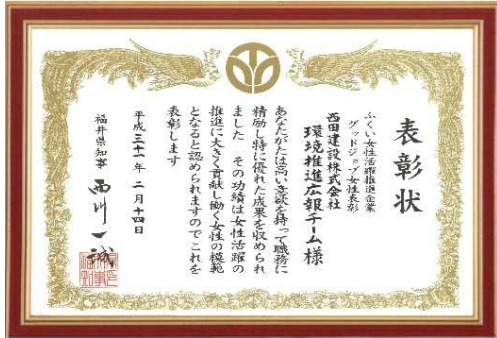 表彰状
ふくい女性活躍推進企業
グッドジョブ女性表彰
西田建設株式会社
環境推進広報チーム様
あなたがたは高い意欲を持って職務に
精励し特に優れた成果を収められ
ました その功績は女性活躍の
推進に大きく貢献し働く女性の模範
となると認められますのでこれを
表彰します
平成三十一年 二月十四日
福井県知事 西川一誠